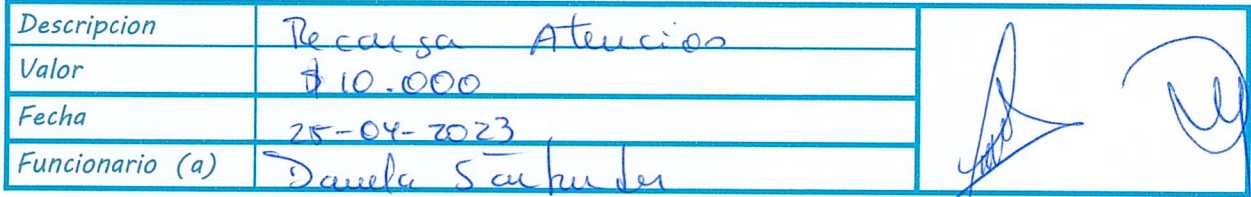 Descripcion Recarga Atencion
Valor $10.000
Fecha 25-04-2023
Funcionario (a) Daniela Santander